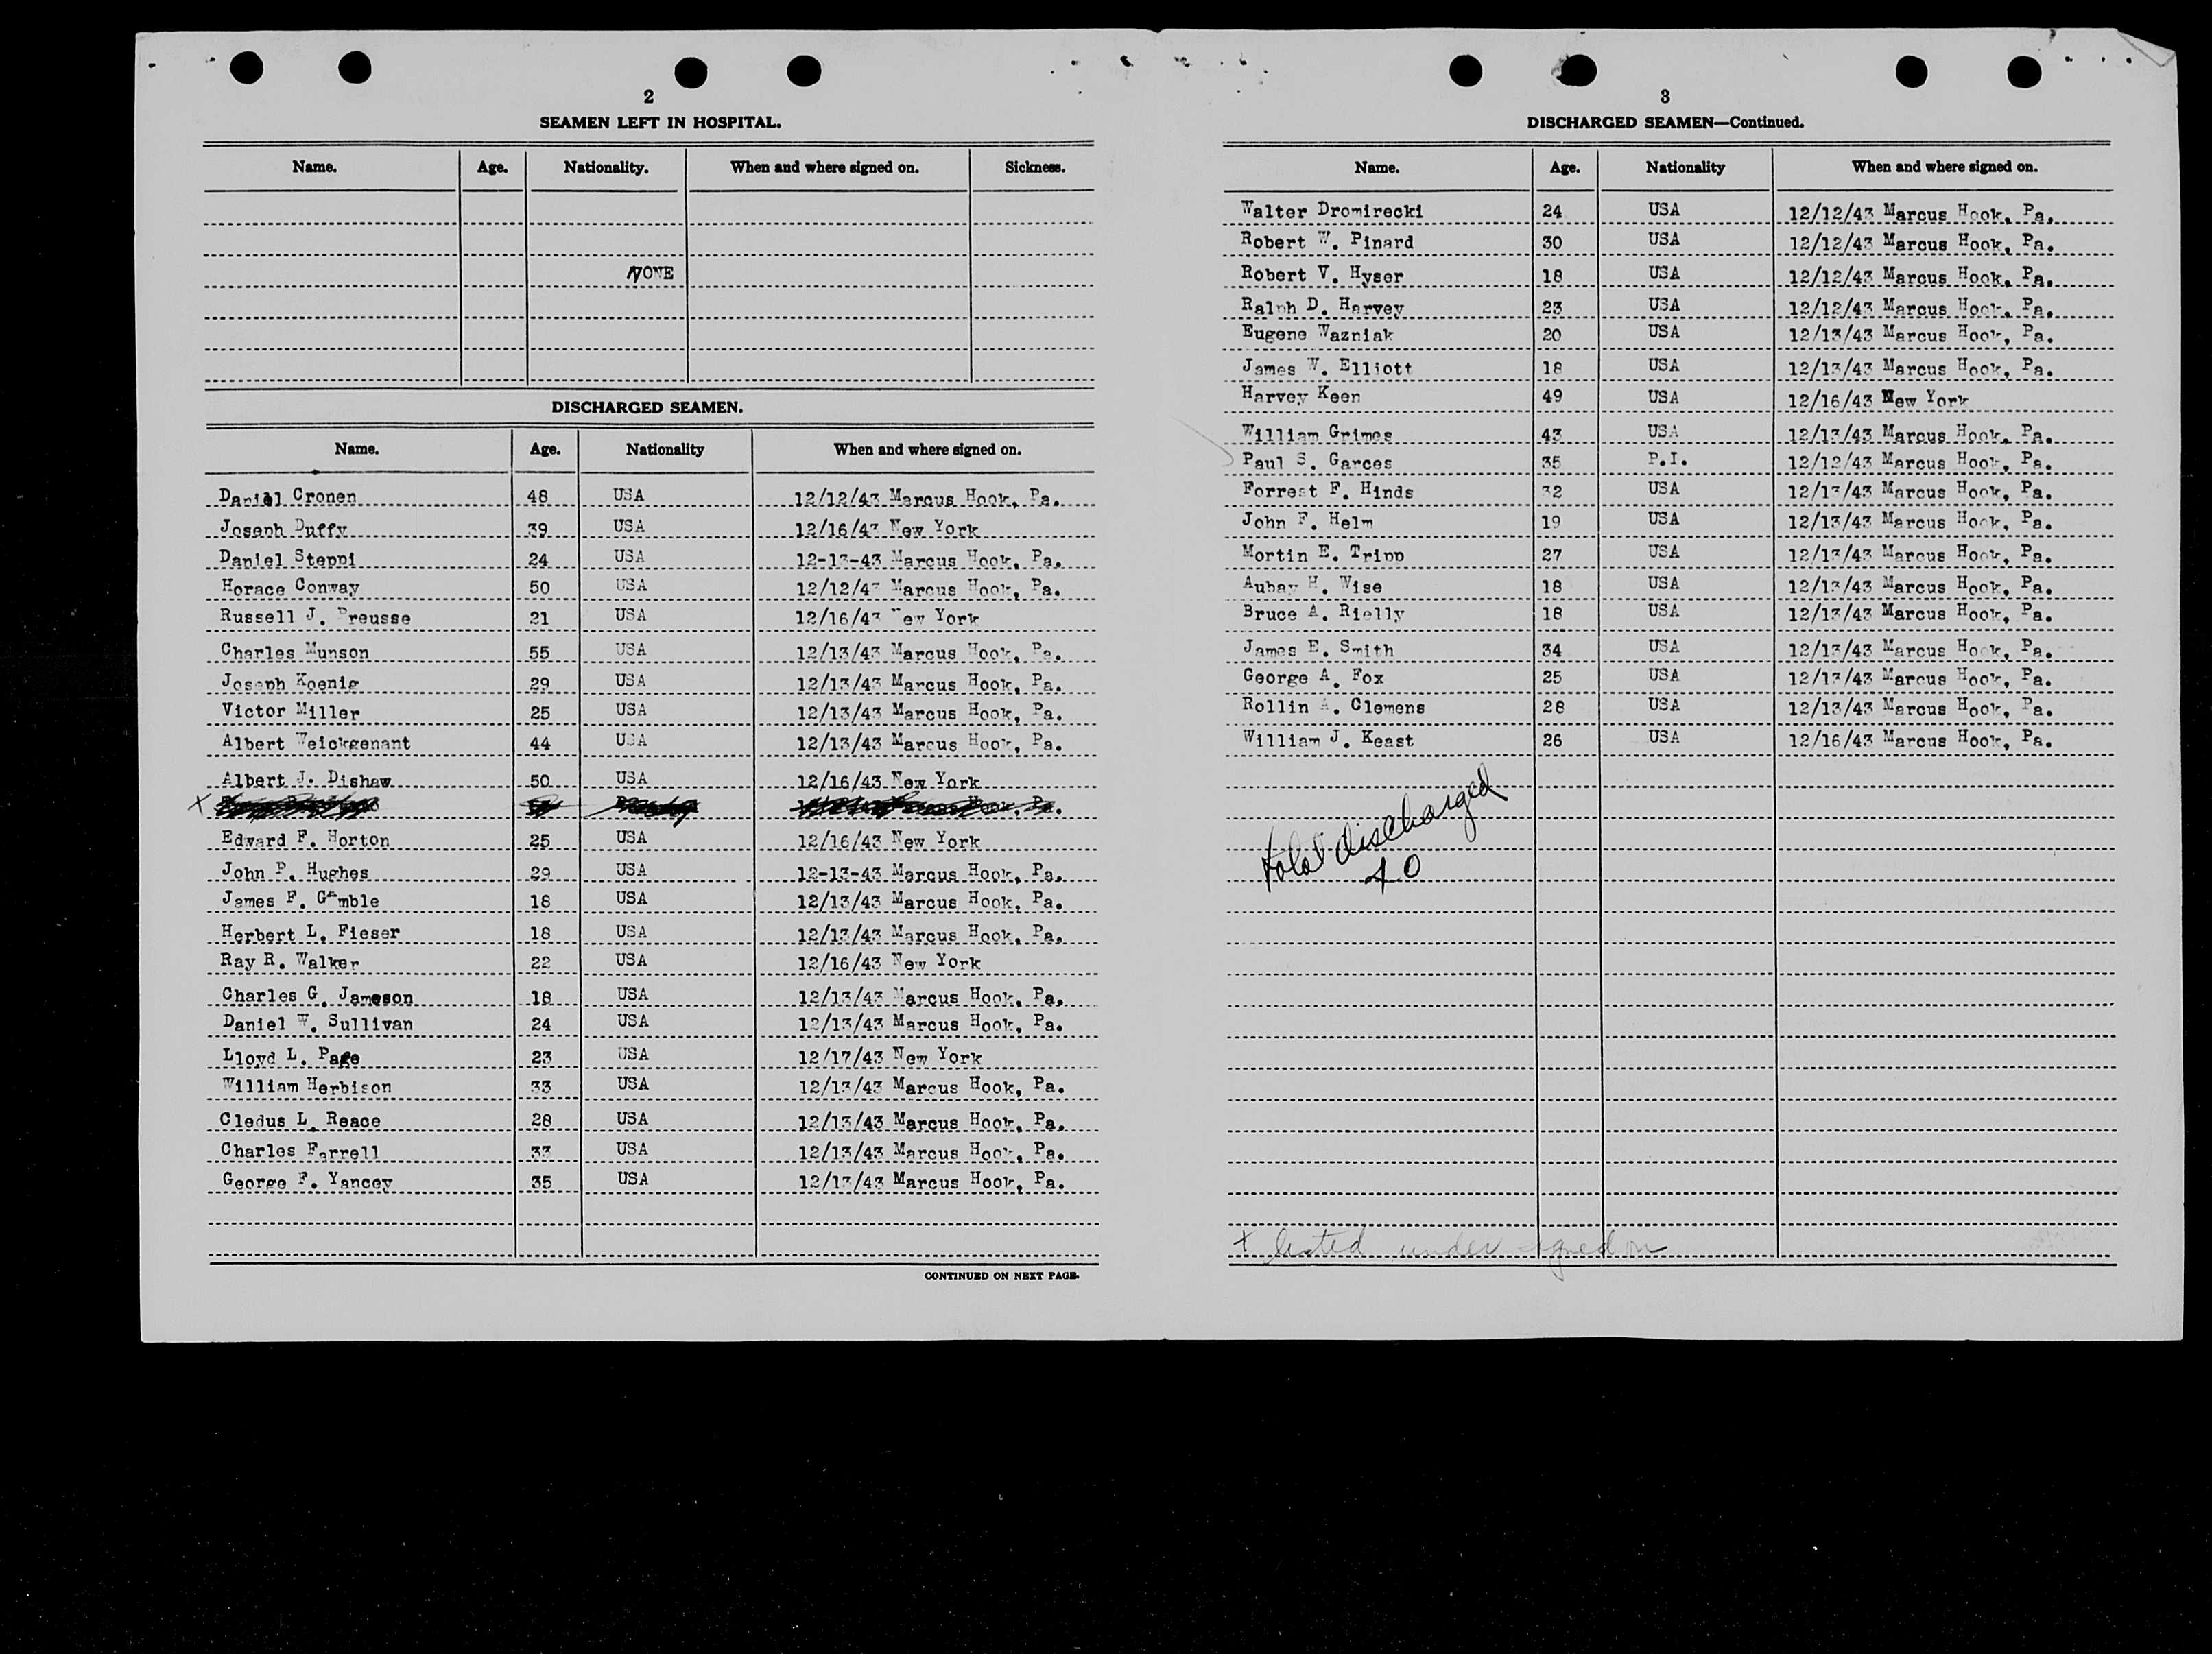 2
SEAMEN LEFT IN HOSPITAL.
Name. Age. Nationality. When and where signed on. Sickness.
NONE
DISCHARGED SEAMEN.
Name. Age. Nationality When and where signed on.
Daniel Cronen 48 USA 12/12/43 Marcus Hook, Pa.
Joseph Duffy 39 USA 12/16/43 New York
Daniel Steppi 24 USA 12-13-43 Marcus Hook, Pa.
Horace Conway 50 USA 12/12/43 Marcus Hook, Pa.
Russell J. Preusse 21 USA 12/16/43 New York
Charles Munson 55 USA 12/13/43 Marcus Hook, Pa.
Joseph Koenig 29 USA 12/13/43 Marcus Hook, Pa.
Victor Miller 25 USA 12/13/43 Marcus Hook, Pa.
Albert Weickgenant 44 USA 12/13/43 Marcus Hook, Pa.
Albert J. Dishaw 50 USA 12/16/43 New York
x Hook, Pa.
Edward F. Horton 25 USA 12/16/43 New York
John P. Hughes 29 USA 12-13-43 Marcus Hook, Pa.
James F. Gamble 18 USA 12/13/43 Marcus Hook, Pa.
Herbert L. Fieser 18 USA 12/13/43 Marcus Hook, Pa.
Ray R. Walker 22 USA 12/16/43 New York
Charles G. Jameson 18 USA 12/13/43 Marcus Hook, Pa.
Daniel W. Sullivan 24 USA 12/13/43 Marcus Hook, Pa.
Lloyd L. Page 23 USA 12/17/43 New York
William Herbison 33 USA 12/13/43 Marcus Hook, Pa.
Cledus L. Reace 28 USA 12/13/43 Marcus Hook, Pa.
Charles Farrell 33 USA 12/13/43 Marcus Hook, Pa.
George F. Yancey 35 USA 12/13/43 Marcus Hook, Pa.
CONTINUED ON NEXT PAGE.
3
DISCHARGED SEAMEN—Continued.
Name. Age. Nationality When and where signed on.
Walter Dromirecki 24 USA 12/12/43 Marcus Hook, Pa.
Robert W. Pinard 30 USA 12/12/43 Marcus Hook, Pa.
Robert V. Hyser 18 USA 12/12/43 Marcus Hook, Pa.
Ralph D. Harvey 23 USA 12/12/43 Marcus Hook, Pa.
Eugene Wazniak 20 USA 12/13/43 Marcus Hook, Pa.
James W. Elliott 18 USA 12/13/43 Marcus Hook, Pa.
Harvey Keen 49 USA 12/16/43 New York
William Grimes 43 USA 12/13/43 Marcus Hook, Pa.
Paul S. Garces 35 P.I. 12/12/43 Marcus Hook, Pa.
Forrest F. Hinds 32 USA 12/13/43 Marcus Hook, Pa.
John F. Helm 19 USA 12/13/43 Marcus Hook, Pa.
Mortin E. Tripp 27 USA 12/13/43 Marcus Hook, Pa.
Aubay H. Wise 18 USA 12/13/43 Marcus Hook, Pa.
Bruce A. Rielly 18 USA 12/13/43 Marcus Hook, Pa.
James E. Smith 34 USA 12/13/43 Marcus Hook, Pa.
George A. Fox 25 USA 12/13/43 Marcus Hook, Pa.
Rollin A. Clemens 28 USA 12/13/43 Marcus Hook, Pa.
William J. Keast 26 USA 12/16/43 Marcus Hook, Pa.
total discharged
40
x listed under signed on